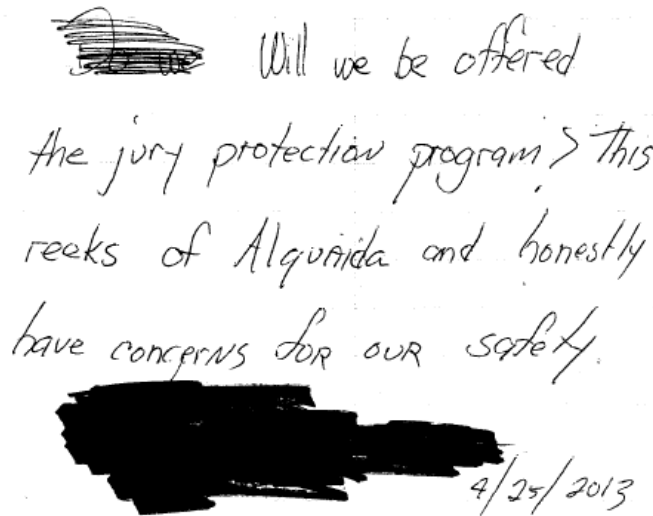 Will we be offered
the jury protection program? This
reeks of Alquaida and honestly
have concerns for our safety.
4/25/2013